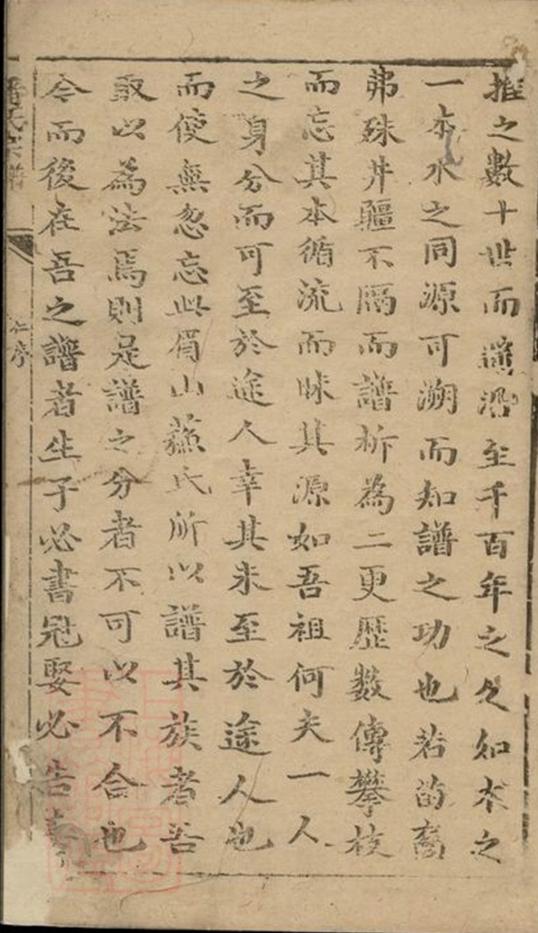 推之數十世而遞沿至千百年之久如木之
一本水之同源可溯而知譜之功也若的裔
弗殊井疆不隔而譜析為二更歷數傳攀枝
而忘其本循流而昧其源如吾祖何夫一人
之身分而可至於途人幸其未至於途人也
而使無忽忘此眉山蘇氏所以譜其族者吾
取以為法焉則是譜之分者不可以不合也
今而後在吾之譜者生子必書冠娶必告
氏宗譜
序